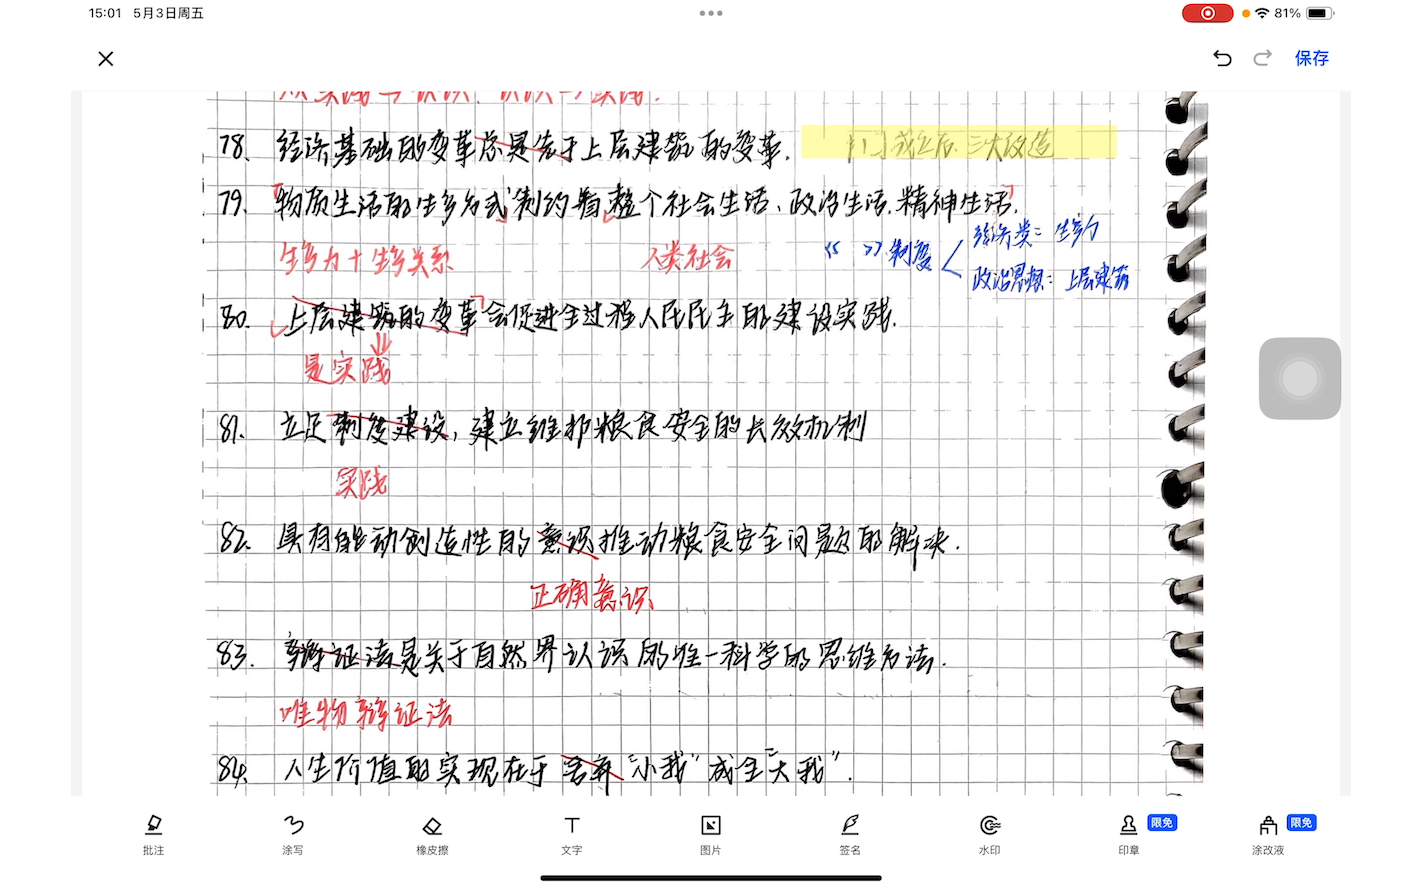 15:01 5月3日周五
81%
保存
从实践→认识,认识→实践.
78、经济基础的变革总是先于上层建筑的变革. 成立后 三大改造
79、物质生活的生产方式制约着整个社会生活、政治生活.精神生活.
生产力+生产关系 人类社会 “ ”制度 经济类:生产力
政治思想:上层建筑
80、上层建筑的变革会促进全过程人民民主的建设实践.
是实践
81、立足制度建设,建立维护粮食安全的长效机制
实践
82、具有能动创造性的意识推动粮食安全问题的解决.
正确意识
83、辩证法是关于自然界认识的唯一科学的思维方法.
唯物辩证法
84、人生价值的实现在于舍弃“小我”成全“大我”.
批注 涂写 橡皮擦 文字 图片 签名 水印 印章 限免 涂改液 限免